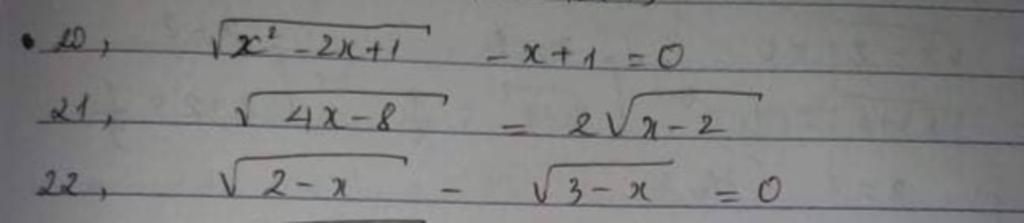 • 20, √(x² - 2x + 1) - x + 1 = 0
21, √(4x - 8) = 2√(x - 2)
22, √(2 - x) - √(3 - x) = 0